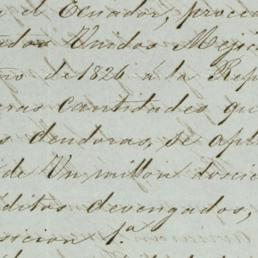 el Ecuador, proce
ados Unidos Mejic
ño de 1826 á la Rep
ras cantidades qu
s deudoras, se apl
de Un millon
ditos devengados,
sicion 1ª